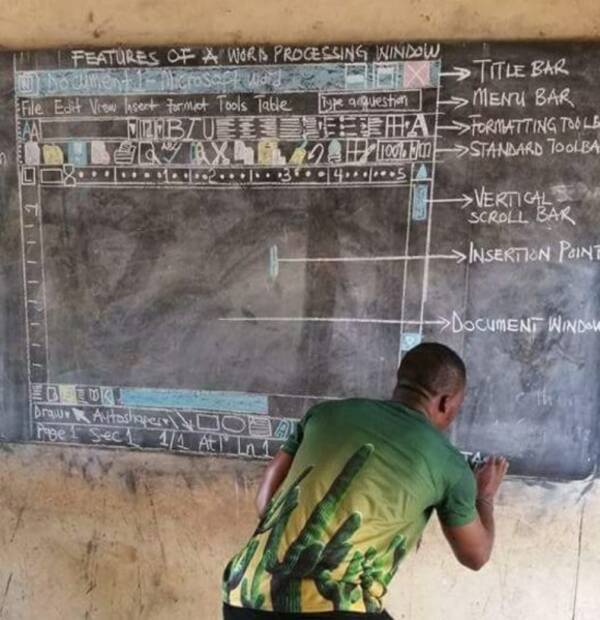 FEATURES OF A WORD PROCESSING WINDOW
Document 1 - Microsoft word
TITLE BAR
File Edit View Insert Format Tools Table
Type a question
MENU BAR
AA
12 B I U
A
FORMATTING TOOLB
100%
STANDARD TOOLBA
L
8 1 2 3 4 5
VERTICAL
SCROLL BAR
INSERTION POINT
DOCUMENT WINDOW
Draw Autoshapes
Page 1 Sec 1 1/1 At 1" Ln 1
STA